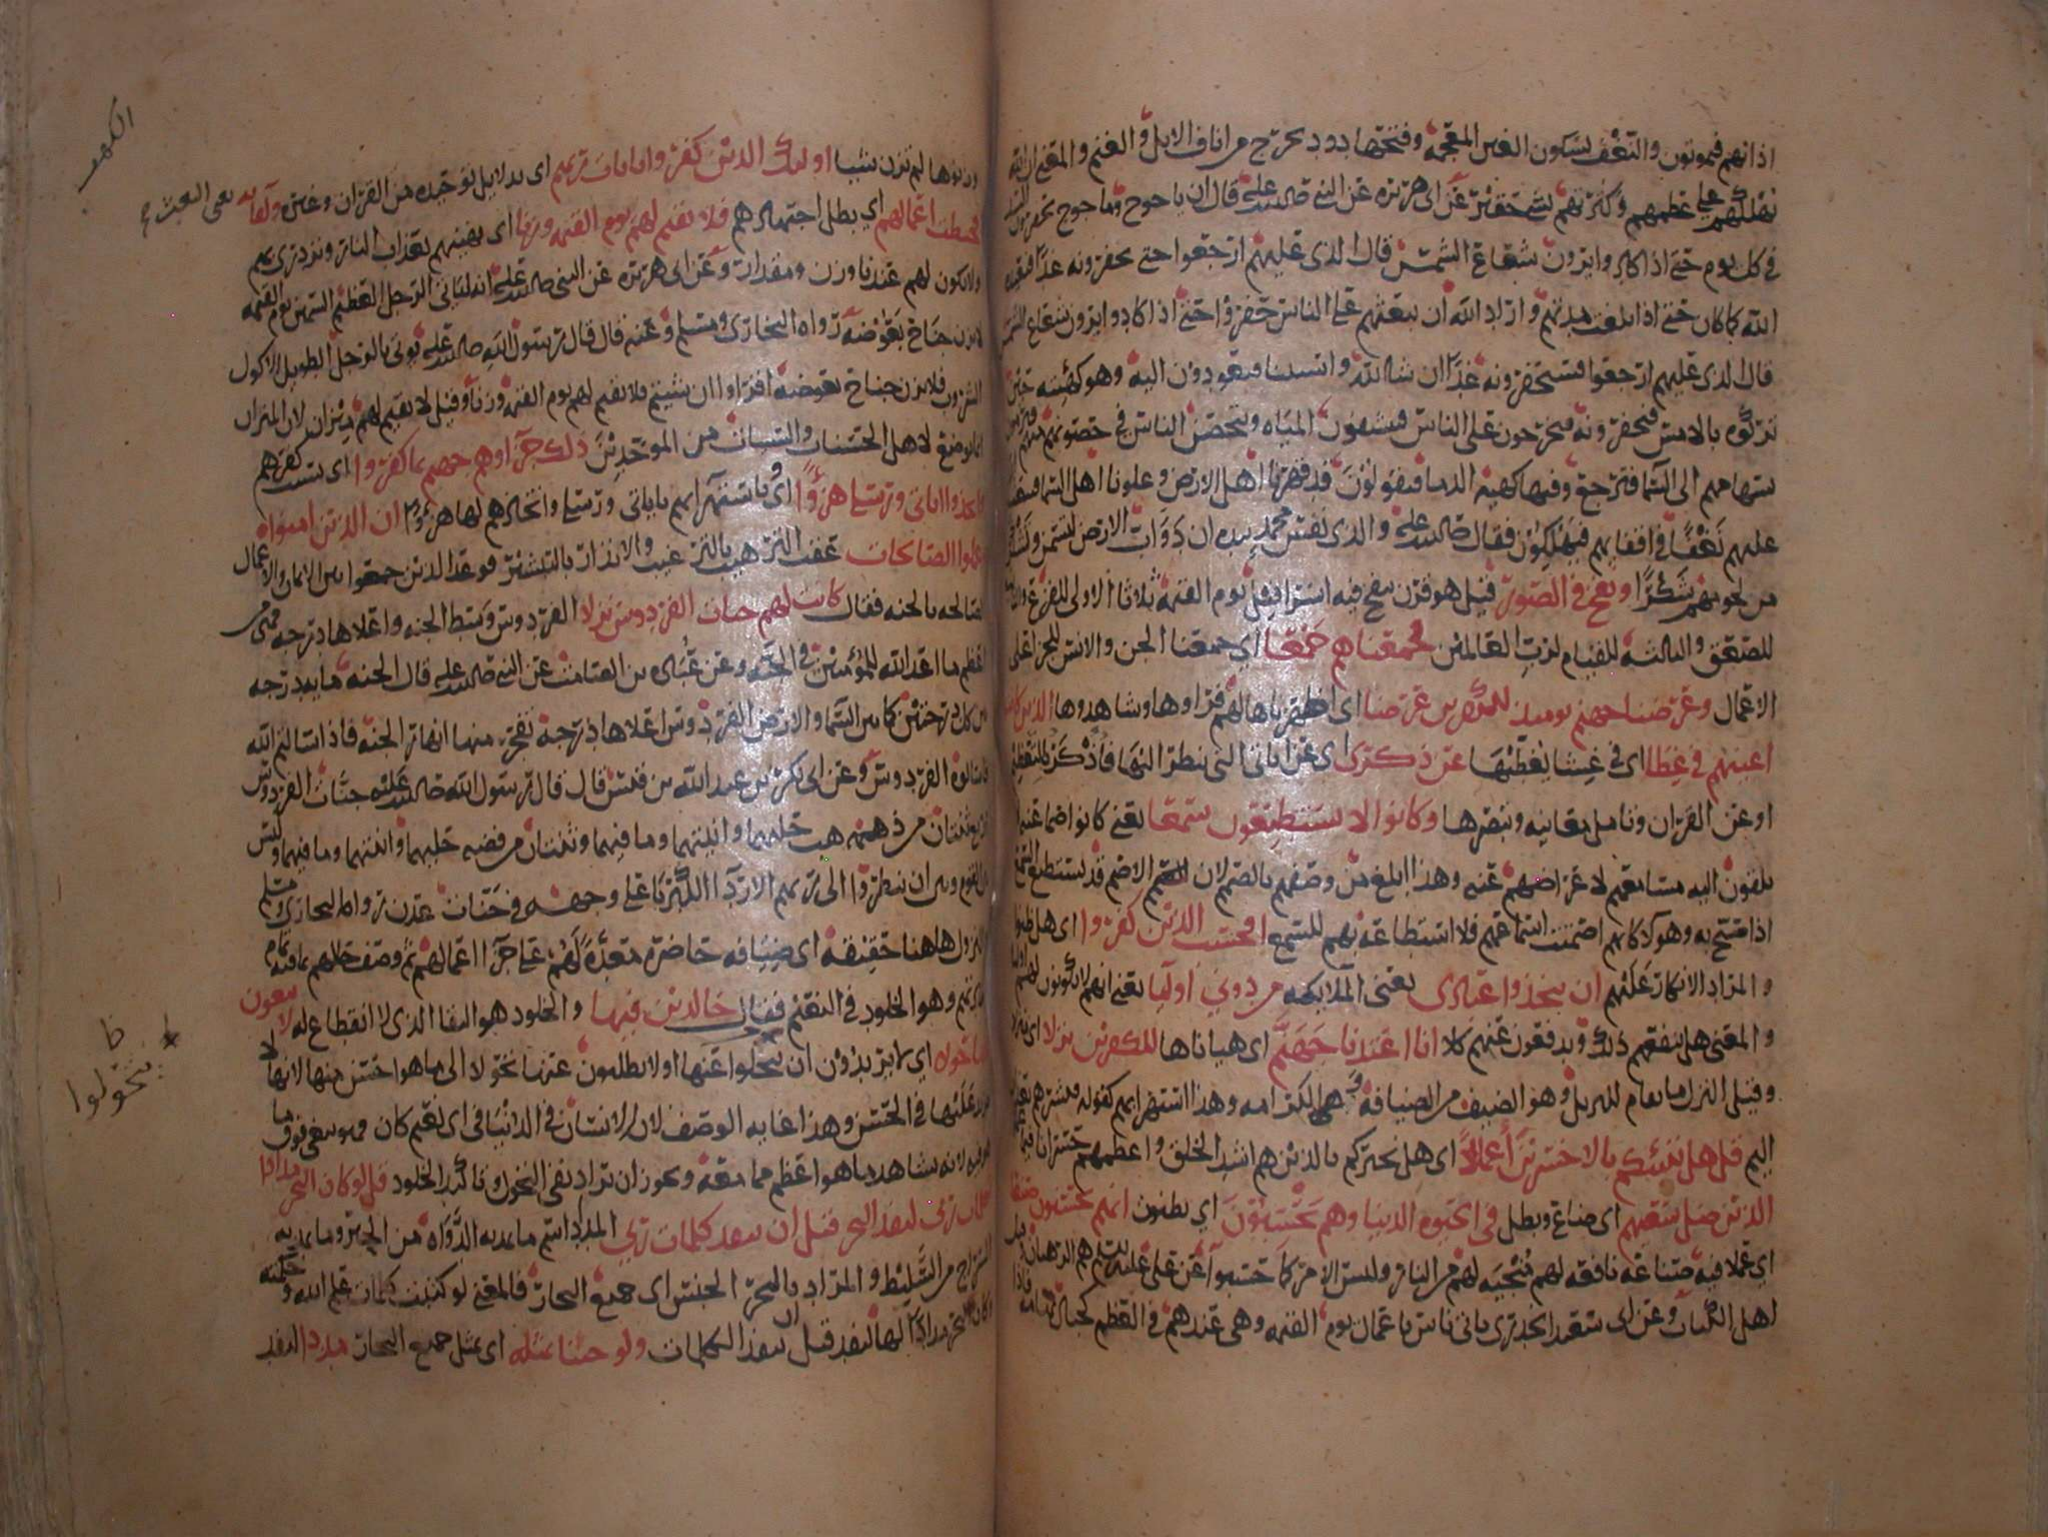 اذانهم فيموتون والنغف بسكون الغين المعجمة وفتحها دود يخرج من اناف الابل والغنم والمعنى ان الله
يهلكهم على عظمهم وكثرتهم بشي حقير عن ابي هريرة عن النبي صلى الله عليه قال ان ياجوج وماجوج يحفرون السد
في كل يوم حتى اذا كادوا يرون شعاع الشمس قال الذي عليهم ارجعوا حتى تحفرونه غدا فيعيده
الله كما كان حتى اذا بلغت مدتهم واراد الله ان يبعثهم على الناس حفروا حتى اذا كادوا يرون شعاع الشمس
قال الذي عليهم ارجعوا فستحفرونه غدا ان شا الله واستثنا فيعودون اليه وهو كهيئته حين
تركوه بالامس فيحفرونه فيخرجون على الناس فينشفون المياه ويتحصن الناس في حصونهم منهم فيرمون
بسهامهم الى السما فترجع وفيها كهية الدما فيقولون قد قهرنا اهل الارض وعلونا اهل السما فيبعث
عليهم نغفا في اقفايهم فيهلكون فقال صلى الله عليه والذي نفس محمد بيده ان دواب الارض لتسمن وتشكر
من لحومهم شكرا ونفخ في الصور قيل هو قرن ينفخ فيه اسرافيل يوم القيمة ثلاثا الاولى للفزع والثانية
للصعق والثالثة للقيام لرب العالمين فجمعناهم جمعا اي جمعنا الجن والانس للجزا على
الاعمال وعرضنا جهنم يومئذ للكفرين عرضا اي اظهرناها لهم فراوها وشاهدوها الذين كانت
اعينهم في غطا اي في غشا يغطيها عن ذكري اي عن اياتي التي ينظر اليها فاذكر بالتعظيم
او عن القران وتامل معانيه وتبصرها وكانوا لا يستطيعون سمعا يعني كانوا صما عنه
يلقون اليه مسامعهم لاعراضهم عنه وهذا ابلغ من وصفهم بالصمم لان الاصم قد يستطيع السمع
اذا صيح به وهولا كانهم اصمتت اسماعهم فلا استطاعة بهم للسمع افحسب الذين كفروا اي هل ظنوا
والمراد الانكار عليهم ان يتخذوا عبادي يعني الملايكه من دوني اوليا يعني انهم لا يكونون لهم اوليا
والمعنى هل ينفعهم ذلك ويدفعون عنهم كلا انا اعتدنا جهنم اي هياناها للكفرين نزلا
وقيل النزل ما يقام للنزيل وهو الضيف من الضيافة وهي الكرامه وهذا استهزا بهم كقوله فبشرهم بعذاب
اليم قل هل ننبئكم بالاخسرين اعمالا اي هل نخبركم بالذين هم اشد الخلق واعظمهم خسرانا فيما
الذين ضل سعيهم اي ضاع وبطل في الحيوه الدنيا وهم يحسبون اي يظنون انهم يحسنون صنعا
اي عملا فيه صناعة نافعه لهم منجية لهم من النار وليس الامر كما حسبوا عن علي هم الرهبان
اهل الكتاب وعن ابي سعيد الخدري ياتي ناس باعمال يوم القيمه وهي عندهم في العظم كجبال تهامه فاذا
الكهف
وزنوها لم تزن شيا اولئك الذين كفروا بايات ربهم اي بدلايل توحيده من القران وغيره ولقايه يعني البعث
فحبطت اعمالهم اي بطل اجتهادهم فلا نقيم لهم يوم القيمه وزنا اي نهينهم بعذاب النار ونزدري بهم
ولا يكون لهم عندنا وزن ومقدار وعن ابي هريرة عن النبي صلى الله عليه انه لياتي الرجل العظيم السمين يوم القيمه
لا يزن جناح بعوضة رواه البخاري ومسلم وعنه قال قال رسول الله صلى الله عليه يوتى بالرجل الطويل الاكول
الشروب فلا يزن جناح بعوضه اقراوا ان شيتم فلا نقيم لهم يوم القيمة وزنا وقيل لا نقيم لهم ميزان لان الميزان
انما يوضع لاهل الحسنات والسيات من الموحدين ذلك جزاوهم جهنم بما كفروا اي بسبب كفرهم
واتخذوا اياتي ورسلي هزوا اي وباستهزايهم باياتي ورسلي واتخاذهم لها هزوا ان الذين امنوا و
عملوا الصالحات عقب الترهيب بالترغيب والانذار بالتبشير فوعد الذين جمعوا بين الايمان والاعمال
الصالحه بالجنه فقال كانت لهم جنات الفردوس نزلا الفردوس وسط الجنه واعلاها درجه فهي
اعظم ما اعد الله للمؤمنين في الجنة وعن عباده بن الصامت عن النبي صلى الله عليه قال الجنه مايه درجه
بين كل درجتين كما بين السما والارض الفردوس اعلاها درجة تفجر منها انهار الجنة فاذا سالتم الله
فاسالوه الفردوس وعن ابي بكر بن عبد الله بن قيس قال قال رسول الله صلى الله عليه جنات الفردوس
اربع ثنتان من ذهب حليهما وانيتهما وما فيهما وثنتان من فضه حليهما وانيتهما وما فيهما وليس
بين القوم وبين ان ينظروا الى ربهم الا ردا الكبريا على وجهه في جنات عدن رواه البخاري ومسلم
النزل هاهنا حقيقة اي ضيافه حاضرة معدة لهم على جزا اعمالهم ثم وصف حالهم بما فيه تمام
وهو الخلود في النعيم فقال خالدين فيها والخلود هو البقا الذي لا انقطاع له لا يبغون
عنها حولا اي لا يريدون ان يتحولوا عنها اولا يطلبون عنها تحولا الى ما هو احسن منها لانها لا
مزيد عليها في الحسن وهذا غايه الوصف لان الانسان في الدنيا في اي نعيم كان فهو يبغي فوق ما
هو فيه لانه يشاهد ما هو اعظم مما معه ويجوز ان يراد نفي التحول وتاكيد الخلود قل لو كان البحر مدادا
لكلمات ربي لنفد البحر قبل ان تنفد كلمات ربي المداد اسم ما يمد به الدواة من الحبر وما يمد به
السراج من السليط والمراد بالبحر الجنس اي جميع البحار فالمعنى لو كتبت كلمات علم الله وحكمته
وكان البحر مدادا لها لنفد قبل ان تنفد الكلمات ولو جئنا بمثله اي بمثل جميع البحار مددا لنفد
يتحولوا